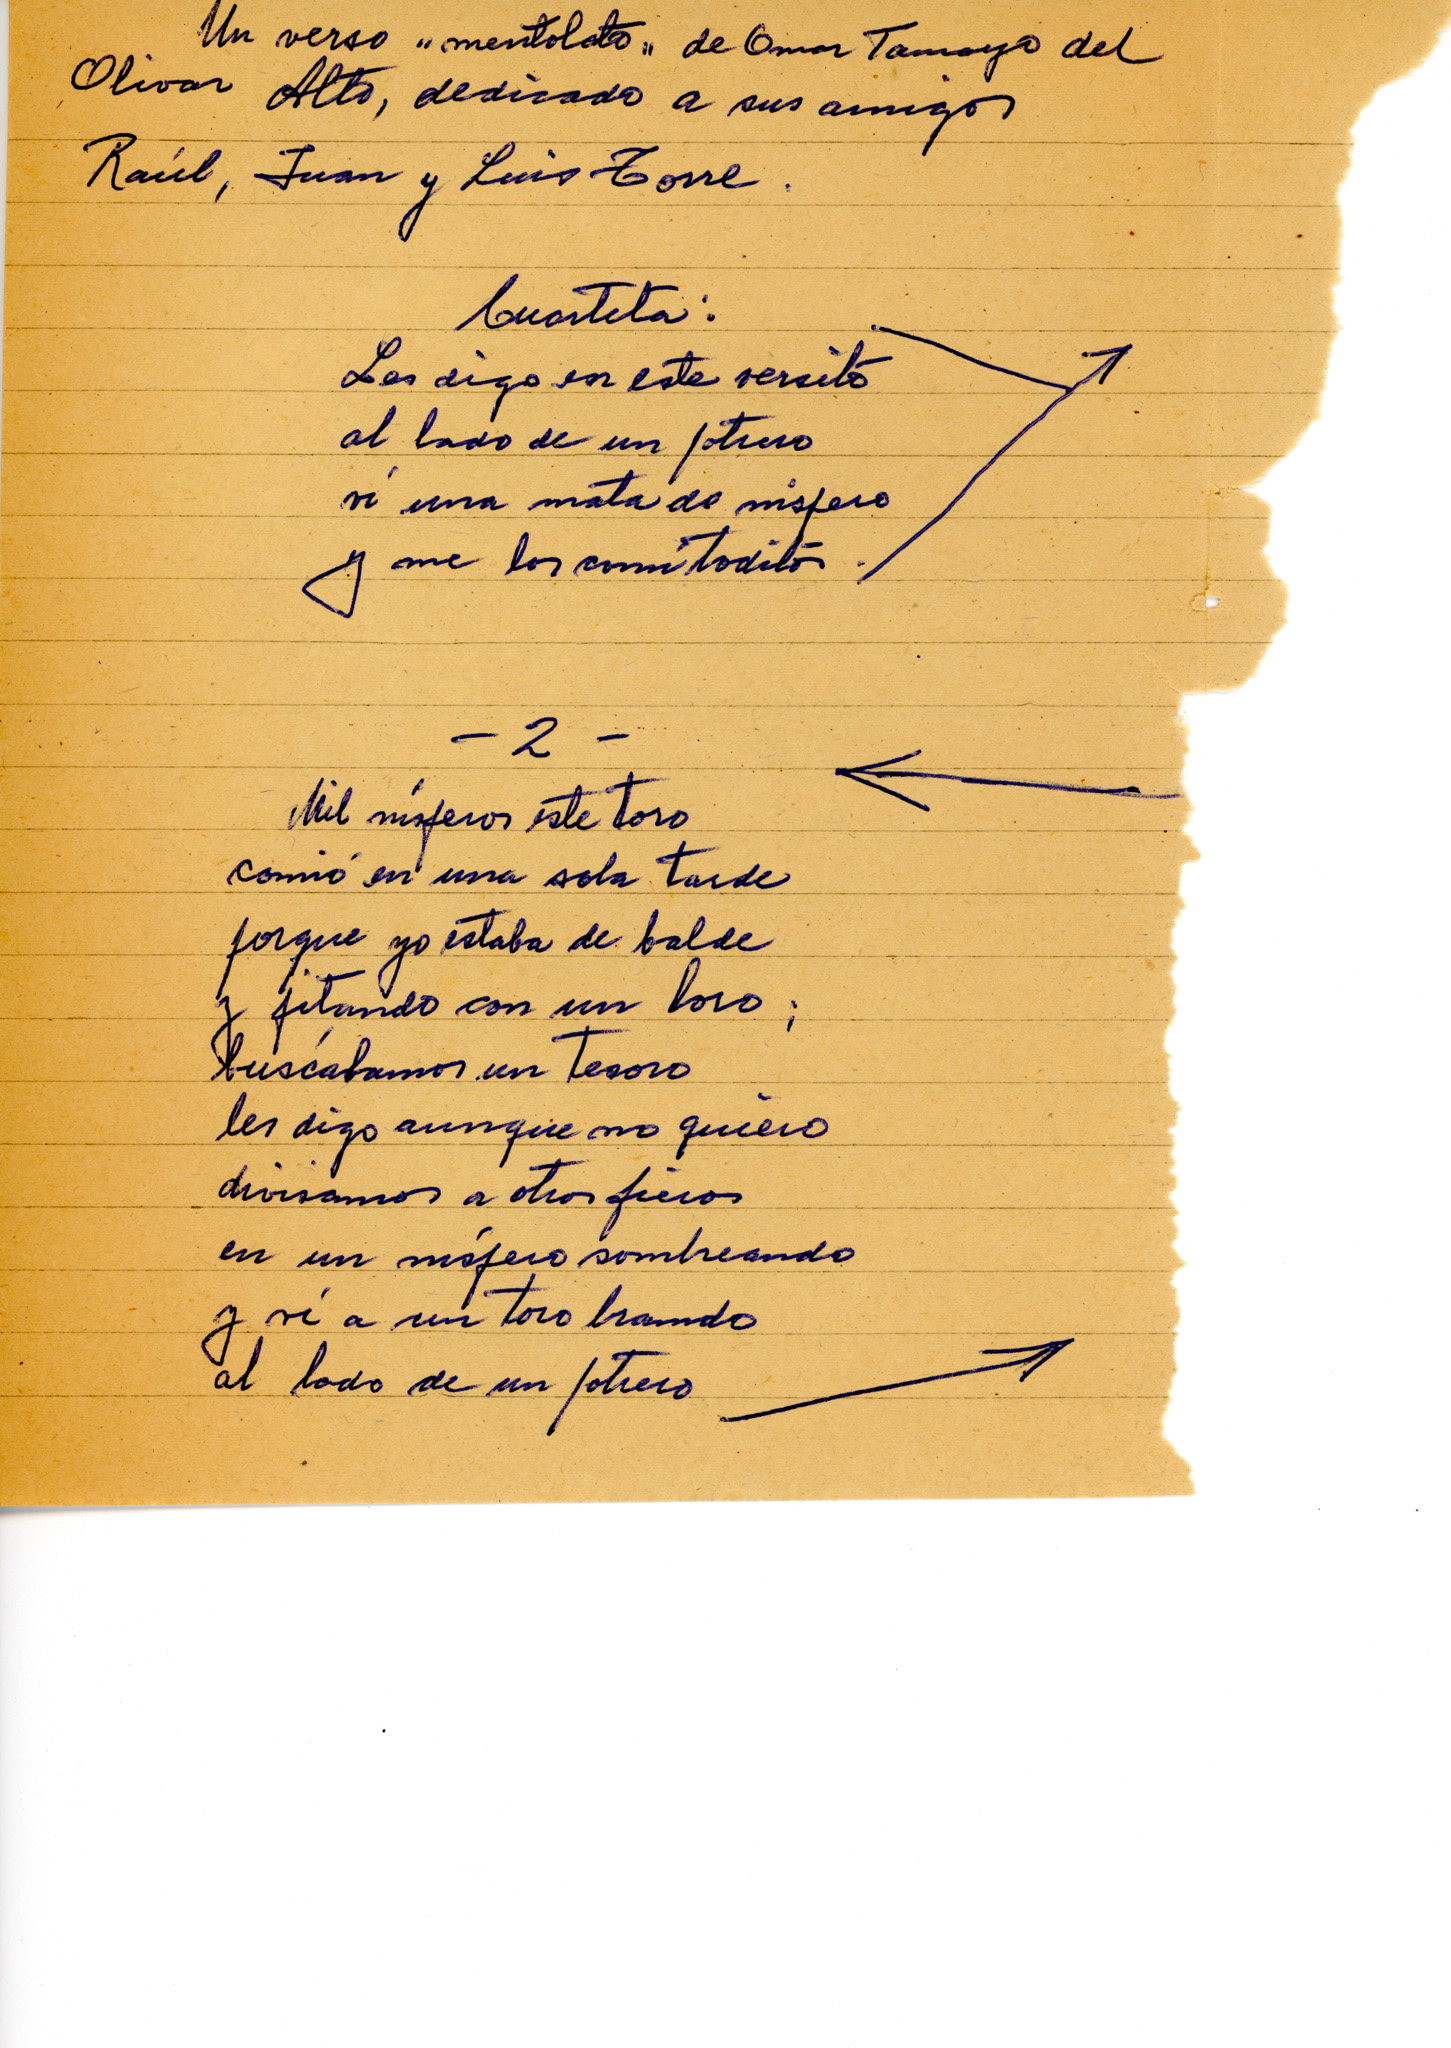 Un verso "mentolato" de Omar Tamayo del
Olivar Alto, dedicado a sus amigos
Raúl, Juan y Luis Torre.
Cuarteta:
Les digo en este versito
al lado de un potrero
ví una mata de níspero
y me los comí toditos.
- 2 -
Mil nísperos este toro
comió en una sola tarde
porque yo estaba de balde
y pitando con un loro;
buscábamos un tesoro
les digo aunque no quiero
divisamos a otros fieros
en un níspero sombreando
y ví a un toro bramdo
al lado de un potrero